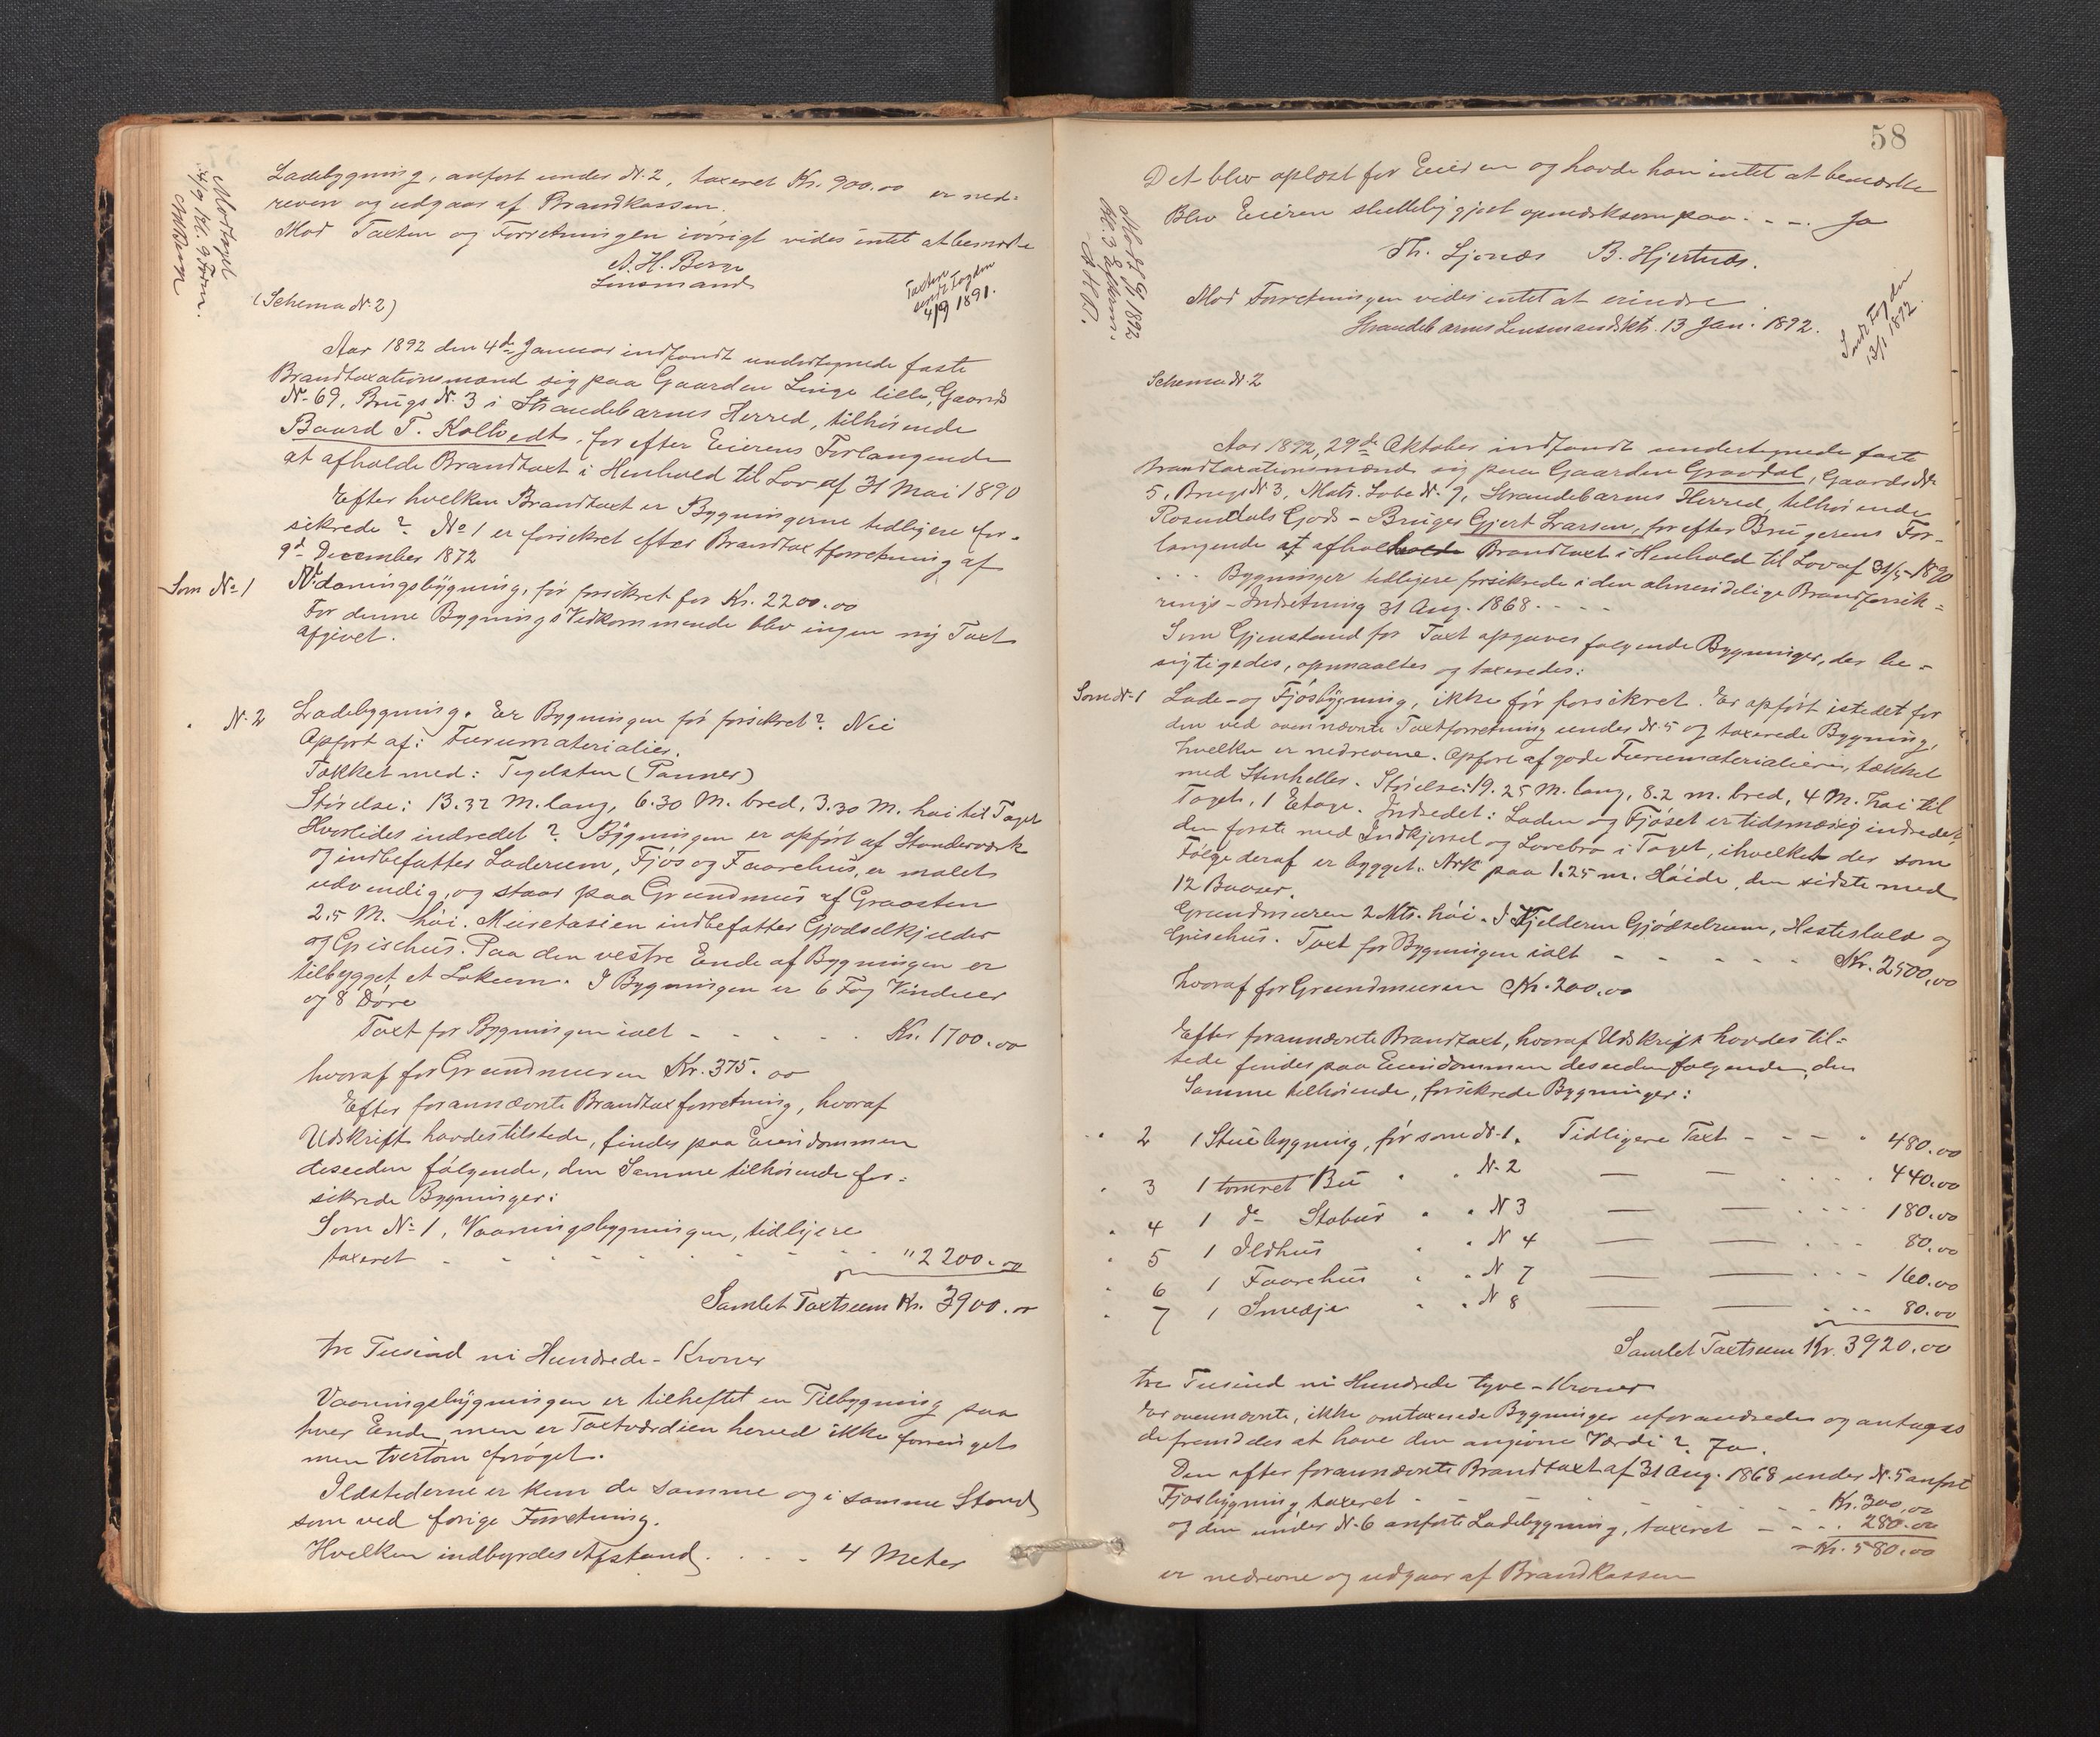 Modtaget
4/9 Kl. 9 Form.
Ladebygning, anført under N. 2, taxeret Kr. 900.00 er ned-
reven og udgaar af Brandkassen.
Mod Taxten og Forretningen iøvrigt vides intet at bemærke
A. H. Berge
Lensmand
Taxten
sendt Fogden
4/9 1891.
(Schema N. 2)
Aar 1892 den 4de Januar indfandt undertegnede faste
Brandtaxationsmænd sig paa Gaarden Linge lille, Gaards
N. 69, Brugs N. 3 i Strandebarms Herred, tilhørende
Baard T. Koltvedt, for efter Eierens Forlangende
at afholde Brandtaxt i Henhold til Lov af 31 Mai 1890
Efter hvilken Brandtaxt er Bygningerne tidligere for-
sikrede? No 1 er forsikret efter Brandtaxtforretning af
9d December 1872
Som No 1 Vaaningsbygning, før forsikret for Kr. 2200.00
For denne Bygnings Vedkommende blev ingen ny Taxt
afgivet.
" N. 2 Ladebygning. Er Bygningen før forsikret? Nei
Opført af: Furumaterialier.
Tækket med: Teglsten (Panner)
Størelse: 13.32 M. lang, 6.30 M. bred, 3.30 M. høi til Taget
Hvorledes indredet? Bygningen er opført af Standerværk
og indbefatter Laderum, Fjøs og Faarehus, er malet
udvendig, og staar paa Grundmur af Graasten
2.5 M. høi. Muretasien indbefatter Gjødselkjelder
og Grisehus. Paa den vestre Ende af Bygningen er
tilbygget et Lokum. I Bygningen er 6 Fag Vinduer
og 8 Døre
Taxt for Bygningen ialt - - - - - Kr. 1700.00
hvoraf for Grundmuren Kr. 375.00
Efter forannævnte Brandtaxforretning, hvoraf
Udskrift havdes tilstede, findes paa Eiendommen
desuden følgende, den Samme tilhørende for-
sikrede Bygninger:
Som No 1, Vaaningsbygningen, tidligere
taxeret - - - - - - - - - " 2200.00
Samlet Taxtsum Kr. 3900.00
tre Tusind ni Hundrede - Kroner
Vaaningsbygningen er tilheftet en Tilbygning paa
hver Ende, men er Taxtværdien herved ikke forringet
men tvertom forøget.
Ildstederne er kun de samme og i samme Stand
som ved forige Forretning.
Hvilken indbyrdes Afstand. - - - 4 Meter
58
Det blev oplæst for Eieren og havde han intet at bemærke
Blev Eieren skuttelig gjort opmerksom paa - - -. Ja
Th. Ljonæs B. Hjertnæs.
Mod Forretningen vides intet at erindre
Strandebarms Lensmandsktr. 13 Jan. 1892.
Sendt Fogden
13/1 1892.
Kl. 3 Efterm.
A H B.
Schema N. 2
Aar 1892, 29de Oktober indfandt undertegnede faste
brandtaxationsmænd sig paa Gaarden Gravdal, Gaards No
5, Brugs N. 3, Matr. Løbe N. 9, Strandebarms Herred, tilhørende
Rosendals Gods - Bruger Gjert Larsen, for efter Brugerens For-
langende at afholde Brandtaxt i Henhold til Lov af 31/5-1890
... Bygninger tidligere forsikrede i den almindelige Brandforsik-
rings-Indretning 31 Aug. 1868. - - -
Som Gjenstand for Taxt opgaves følgende Bygninger, der be-
sigtigedes, opmaaltes og taxeredes:
Som N. 1 Lade- og Fjøsbygning, ikke før forsikret. Er opført istedet for
den ved ovennævnte Taxtforretning under N. 5 og taxerede Bygning,
hvilke er nedrevne. Opført af gode Furumaterialier, tækket
med Stenheller. Størelse: 19.25 M. lang, 8.2 m. bred, 4 M. høi til
Taget, 1 Etage. Indredet: Laden og Fjøset er tidsmæsig indredet,
den første med Indkjørsel og Lovebro i Taget, ihvilket der som
Følge deraf er bygget Ark paa 1.25 m. Høide, den sidste med
12 Baaser.
Grundmuren 2 Mtr. høi. I Kjelderen Gjødselrum, Hestestald og
Grisehus. Taxt for Bygningen ialt - - - - - Kr. 2500,00
hvoraf for Grundmuren Kr. 200.00
Efter forannævnte Brandtaxt, hvoraf Udskrift havdes til-
stede findes paa Eiendommen desuden følgende, den
Samme tilhørende, forsikrede Bygninger:
" 2 1 Stuebygning, før som N. 1. Tidligere Taxt - - - - 480.00
" 3 1 tømret Bu " " N. 2 — — - - - - 440.00
" 4 1 do Stabur " " N 3 — — - - - - 180.00
" 5 1 Ildhus " " N 4 — — - - - 80.00
" 6 1 Faarehus " " N 7 — — - - - 160.00
" 7 1 Smedje " " N 8 — — - - - 80.00
Samlet Taxtsum Kr. 3920.00
tre Tusind ni Hundrede tyve - Kroner
Er ovennævnte, ikke omtaxerede Bygninger uforandrede og antages
de fremdeles at have den angivne Værdi? Ja.
Den efter forannævnte Brandtaxt af 31 Aug. 1868 under N. 5 anført
Fjøsbygning taxeret - - - - - - - Kr. 300,00
og den under N. 6 anførte Ladebygning, taxeret - - - - 280.00
- Kr. 580.00
er nedrevne og udgaar af Brandkassen